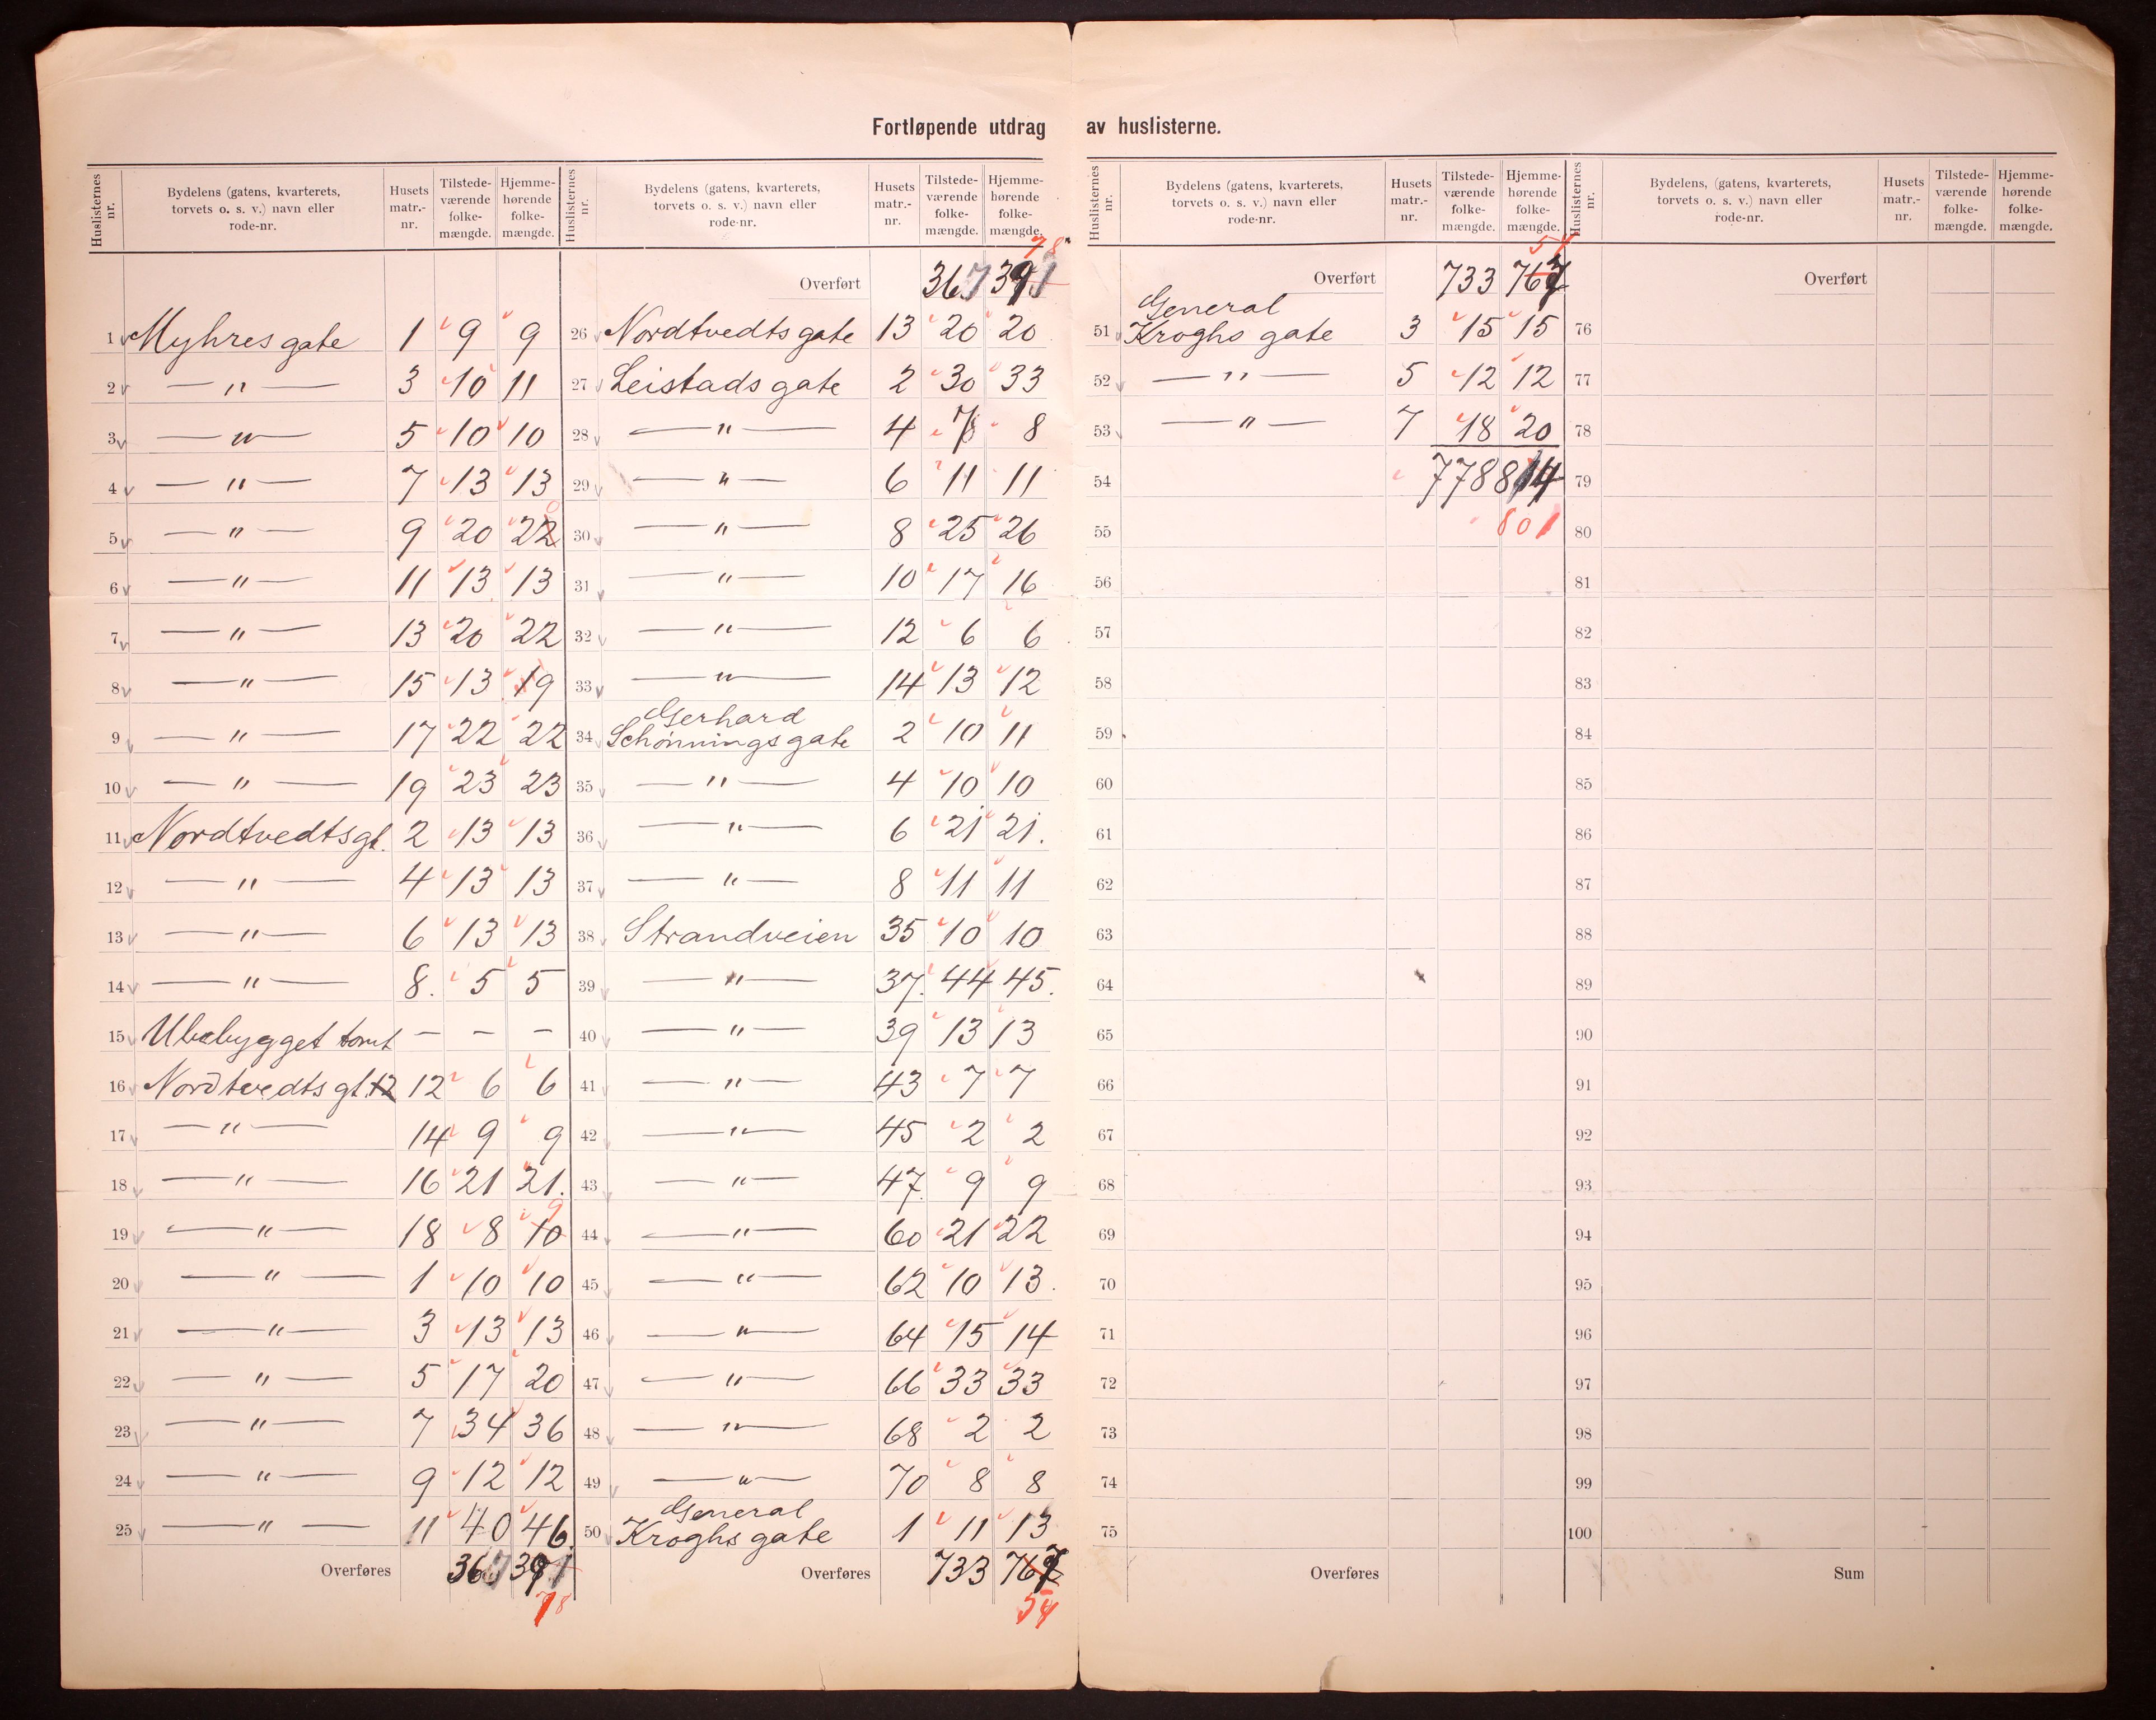 Fortløpende utdrag av huslisterne.
Huslisternes nr. Bydelens (gatens, kvarterets, torvets o. s. v.) navn eller rode-nr. Husets matr.-nr. Tilstedeværende folkemængde. Hjemmehørende folkemængde.
1 Myhres gate 1 9 9
2 — " — 3 10 11
3 — " — 5 10 10
4 — " — 7 13 13
5 — " — 9 20 22 0
6 — " — 11 13 13
7 — " — 13 20 22
8 — " — 15 13 19
9 — " — 17 22 22
10 — " — 19 23 23
11 Nordtvedtsgt. 2 13 13
12 — " — 4 13 13
13 — " — 6 13 13
14 — " — 8. 5 5
15 Ubebygget tomt – – –
16 Nordtvedts gt. 12 12 6 6
17 — " — 14 9 9
18 — " — 16 21 21.
19 — " — 18 8 10 9
20 — " — 1 10 10
21 — " — 3 13 13
22 — " — 5 17 20
23 — " — 7 34 36
24 — " — 9 12 12
25 — " — 11 40 46.
Overføres 367 391
78
Huslisternes nr. Bydelens (gatens, kvarterets, torvets o. s. v.) navn eller rode-nr. Husets matr.-nr. Tilstedeværende folkemængde. Hjemmehørende folkemængde.
78
Overført 367 391
26 Nordtvedts gate 13 20 20
27 Leistads gate 2 30 33
28 — " — 4 8 8
29 — " — 6 11 11
30 — " — 8 25 26
31 — " — 10 17 16
32 — " — 12 6 6
33 — " — 14 13 12
34 Gerhard Schønnings gate 2 10 11
35 — " — 4 10 10
36 — " — 6 21 21.
37 — " — 8 11 11
38 Strandveien 35 10 10
39 — " — 37. 44 45.
40 — " — 39 13 13
41 — " — 43 7 7
42 — " — 45 2 2
43 — " — 47. 9 9
44 — " — 60 21 22
45 — " — 62 10 13.
46 — " — 64 15 14
47 — " — 66 33 33
48 — " — 68 2 2
49 — " — 70 8 8
50 General Kroghs gate 1 11 13
Overføres 733 767
54
Huslisternes nr. Bydelens (gatens, kvarterets, torvets o. s. v.) navn eller rode-nr. Husets matr.-nr. Tilstedeværende folkemængde. Hjemmehørende folkemængde.
54
Overført 733 767
51 General Kroghs gate 3 15 15
52 — " — 5 12 12
53 — " — 7 18 20
54 778 814
55 801
56
57
58
59
60
61
62
63
64
65
66
67
68
69
70
71
72
73
74
75
Overføres
Huslisternes nr. Bydelens, (gatens, kvarterets, torvets o. s. v.) navn eller rode-nr. Husets matr.-nr. Tilstedeværende folkemængde. Hjemmehørende folkemængde.
Overført
76
77
78
79
80
81
82
83
84
85
86
87
88
89
90
91
92
93
94
95
96
97
98
99
100
Sum